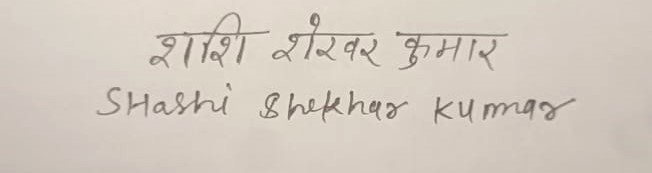 शशि शेखर कुमार
SHashi Shekhar Kumar